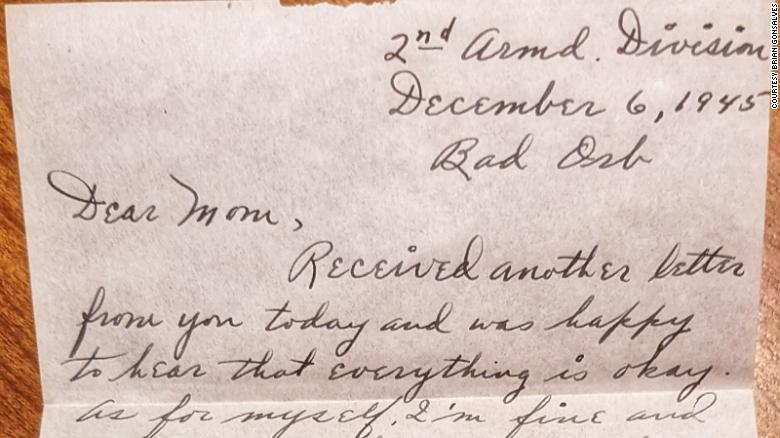 2nd Armd. Division
December 6, 1945
Bad Orb
Dear Mom,
Received another letter
from you today and was happy
to hear that everything is okay.
As for myself, I'm fine and
COURTESY BRIAN GONSALVES